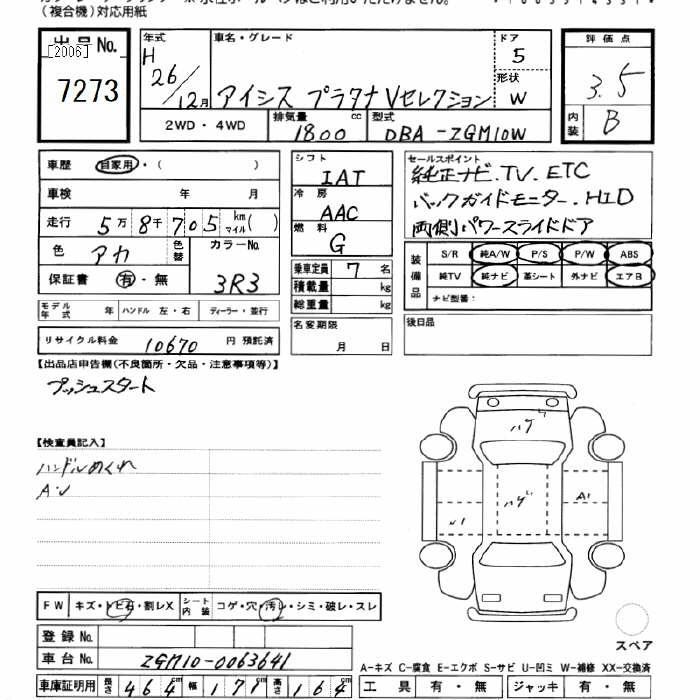 （複合機）対応用紙
出品No.
[2006]
7273
年式
H
26/12月
車名・グレード
アイシス プラタナ Vセレクション
ドア
5
形状
W
2WD・4WD
排気量
1800 cc
型式
DBA-ZGM10W
評価点
3.5
内装
B
車歴 自家用・（ ）
車検 年 月
走行 5万8千705 km マイル( )
色 アカ 色替
カラーNo.
3R3
保証書 有・無
モデル年式 年 ハンドル 左・右 ディーラー・並行
リサイクル料金 10670 円 預託済
シフト
IAT
冷房
AAC
燃料
G
乗車定員 7 名
積載量 kg
総重量 kg
名変期限
月 日
セールスポイント
純正ナビ.TV.ETC
バックガイドモニター.HID
両側パワースライドドア
装備品
S/R 純A/W P/S P/W ABS
純TV 純ナビ 革シート 外ナビ エアB
ナビ型番：
後日品
【出品店申告欄(不良箇所・欠品・注意事項等)】
プッシュスタート
【検査員記入】
ハンドルめくれ
A・U
ハゲ
ハゲ
A1
U1
スペア
FW キズ・トビ石・割レX シート内装 コゲ・穴・汚レ・シミ・破レ・スレ
登録No.
車台No. ZGM10-0063641
車庫証明用 長さ 464cm 幅 171cm 高さ 164cm
A-キズ C-腐食 E-エクボ S-サビ U-凹ミ W-補修 XX-交換済
工具 有・無 ジャッキ 有・無